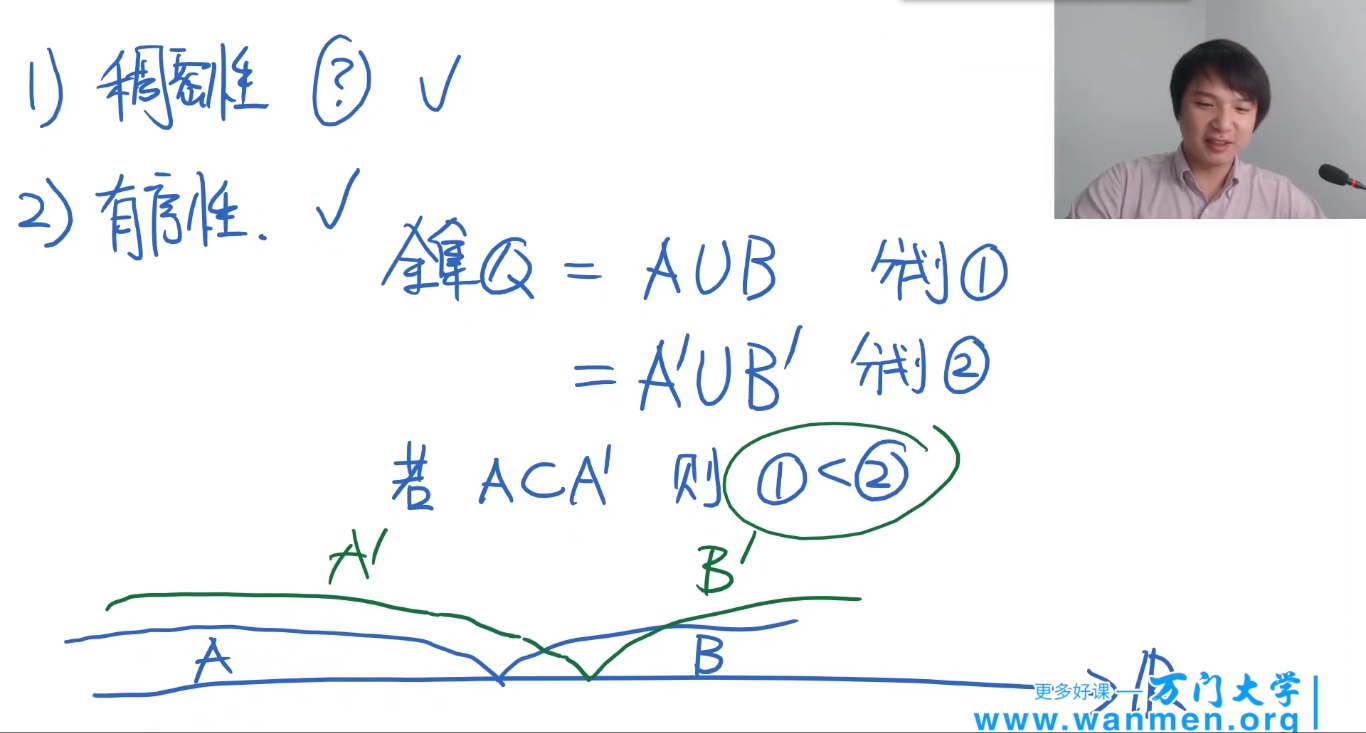 1) 稠密性 ? ✓
2) 有序性. ✓
全集Q = A∪B 分割①
= A'∪B' 分割②
若 A⊂A' 则 ①<②
A' B'
A B
R
更多好课 — 万门大学
www.wanmen.org